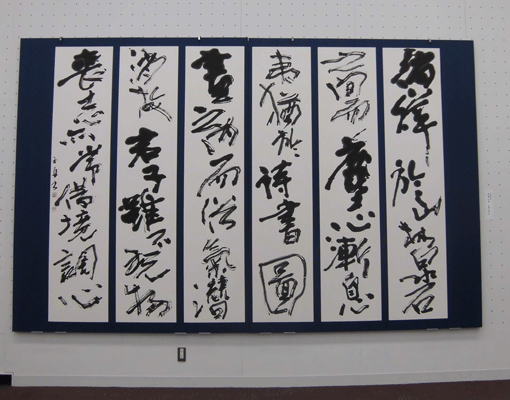 徜徉於山林泉石
之間而塵心漸息
夷猶於詩書圖
畫之内而俗氣潛
消故君子雖不玩物
喪志亦常借境調心